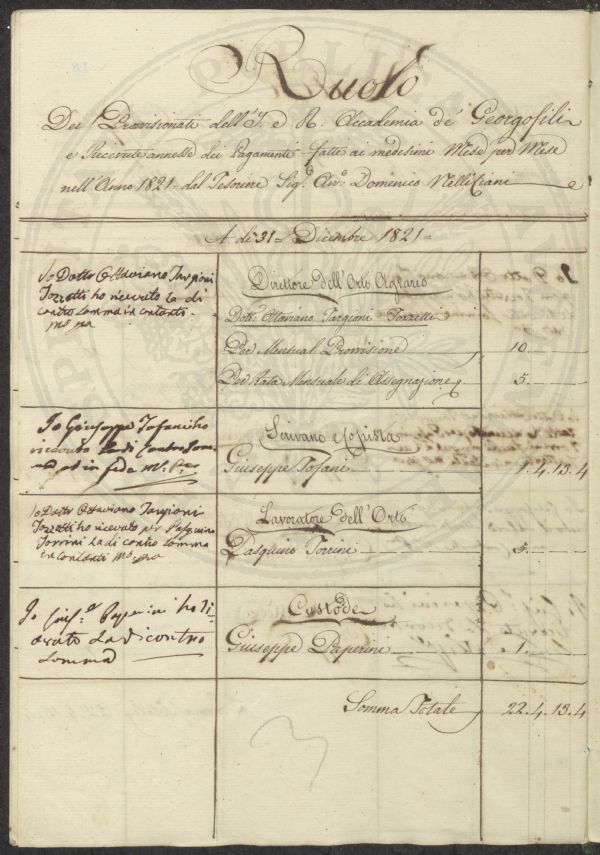 Ruolo
Dei Provisionati dell' I. e R. Accademia de' Georgofili
e Ricevute annelle dei Pagamenti fatte ai medesimi Mese per Mese
nell' Anno 1821 dal Tesoriere Sig.r Av.o Domenico Nelli Ciani
A dì 31 Dicembre 1821
Io Dott. Ottaviano Targioni
Tozzetti ho ricevuto la di
contro somma in contanti
mo pa
Direttore dell' Orto Agrario
Dott. Ottaviano Targioni Tozzetti
Per Mensual Provisione 10
Per Rata Mensuale di Assegnazione 5
Io Giuseppe Tofani ho
ricevuto la di contro Som
ma et in fede Mo. Pro
Scrivano e Copista
Giuseppe Tofani 1.4.13.4
Io Dott. Ottaviano Targioni
Tozzetti ho ricevuto per Pasquino
Torrini la di contro somma
in contanti mo. pa
Lavoratore dell' Orto
Pasquino Torrini 5
Io Gius.e Paperini ho ri-
cevuto la di contro
somma
Custode
Giuseppe Paperini 1
Somma Totale 22.4.13.4